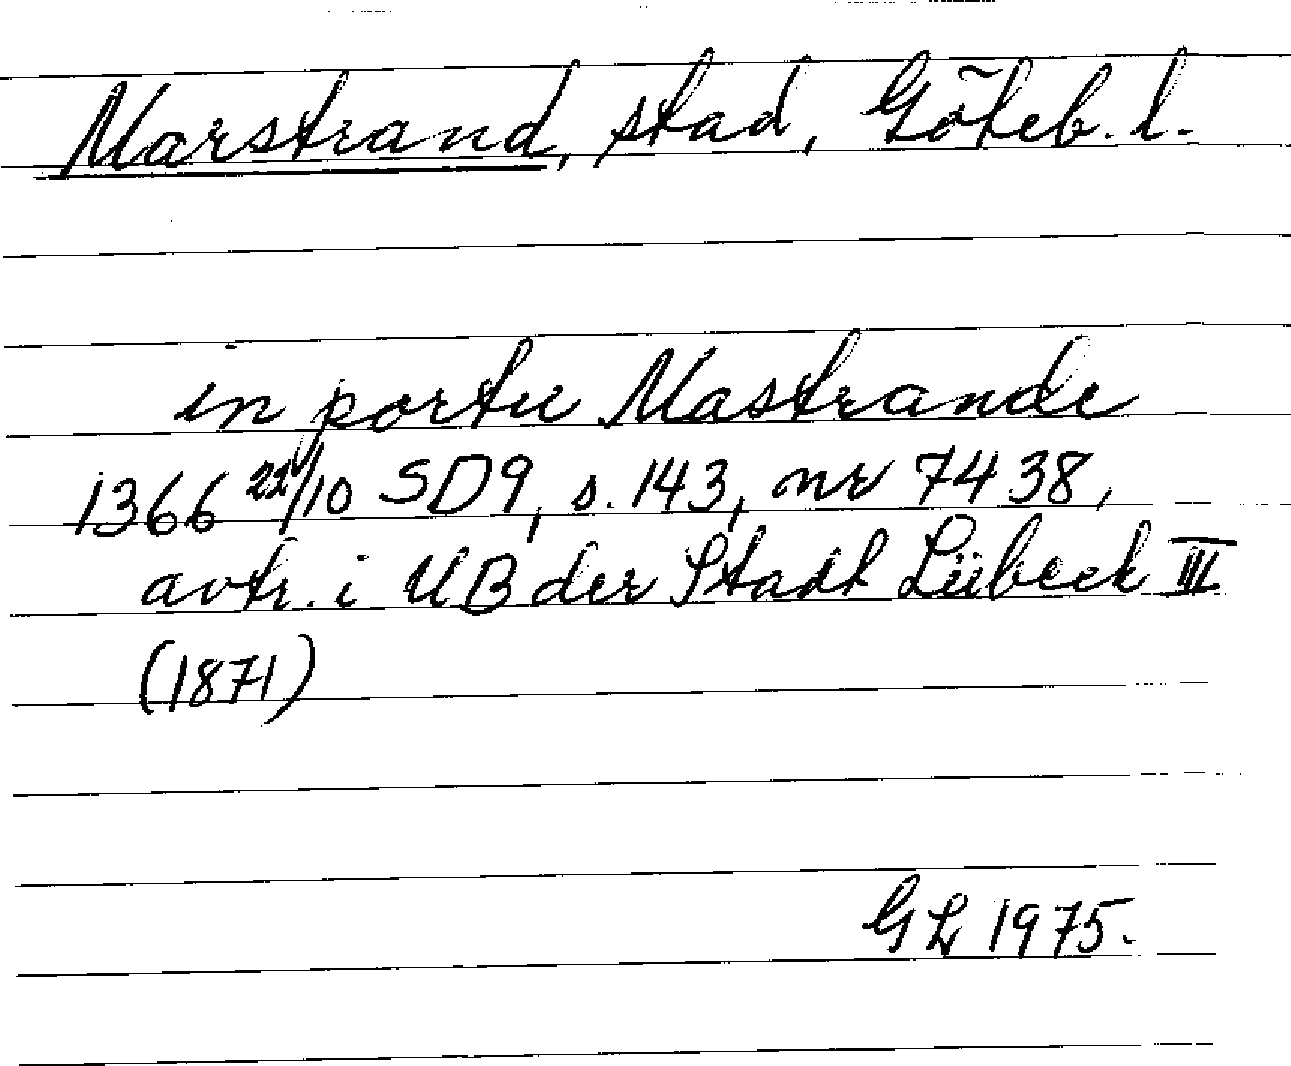 Marstrand, stad, Göteb. l.
in portu Mastrande
1366 22/10 SD9, s. 143, nr 7438,
avtr. i UB der Stadt Lübeck III
(1871)
GL 1975.